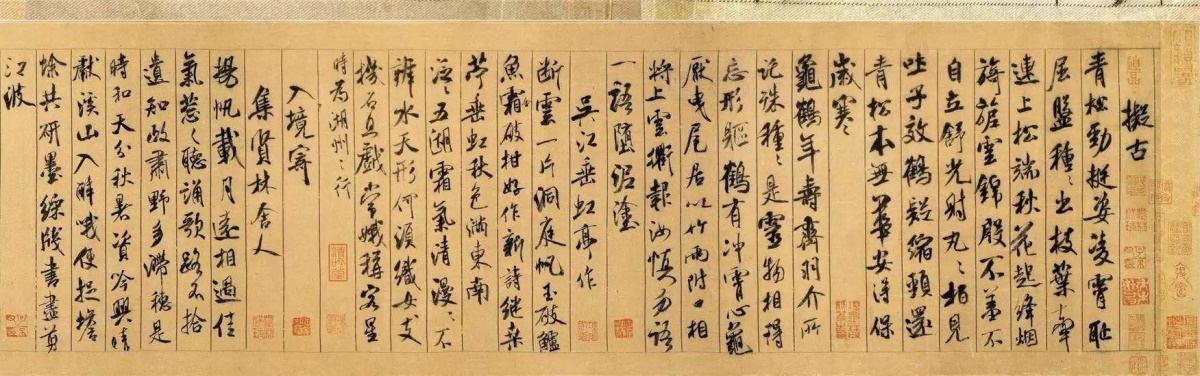 擬古
青松勁挺姿凌霄恥
屈盤種々出枝葉牽
連上松端秋花起絳烟
旖旎雲錦殷不羞不
自立舒光射丸々柏見
吐子效鶴疑縮頸還
青松本無華安得保
歲寒
龜鶴年壽齊羽介所
託殊種々是靈物相得
忘形軀鶴有沖霄心龜
厭曳尾居以竹兩附口相
將上雲衢報汝慎勿語
一語墮泥塗
吳江垂虹亭作
断雲一片洞庭帆玉破鱸
魚霜破柑好作新詩継桑
苧垂虹秋色滿東南
泛々五湖霜氣清漫々不
辨水天形何須織女支
機石且戲常娥稱客星
時為湖州之行
入境寄
集賢林舍人
揚帆載月遠相過佳
氣葱々聽誦歌路不拾
遺知政肅野多滯穗是
時和天分秋暑資吟興晴
獻溪山入醉哦便捉蟾
蜍共研墨綵牋書盡剪
江波